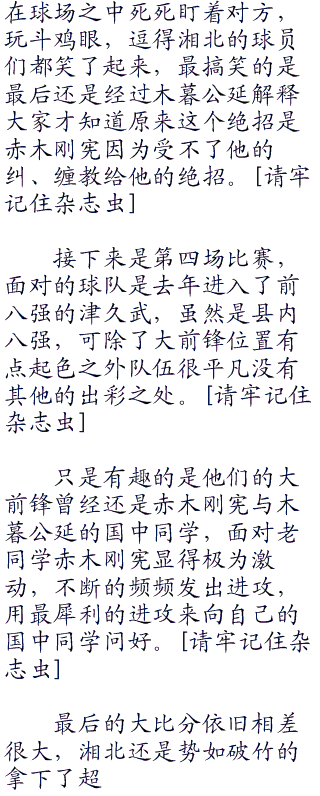 在球场之中死死盯着对方，
玩斗鸡眼，逗得湘北的球员
们都笑了起来，最搞笑的是
最后还是经过木暮公延解释
大家才知道原来这个绝招是
赤木刚宪因为受不了他的
纠、缠教给他的绝招。[请牢
记住杂志虫]
接下来是第四场比赛，
面对的球队是去年进入了前
八强的津久武，虽然是县内
八强，可除了大前锋位置有
点起色之外队伍很平凡没有
其他的出彩之处。[请牢记住
杂志虫]
只是有趣的是他们的大
前锋曾经还是赤木刚宪与木
暮公延的国中同学，面对老
同学赤木刚宪显得极为激
动，不断的频频发出进攻，
用最犀利的进攻来向自己的
国中同学问好。[请牢记住杂
志虫]
最后的大比分依旧相差
很大，湘北还是势如破竹的
拿下了超